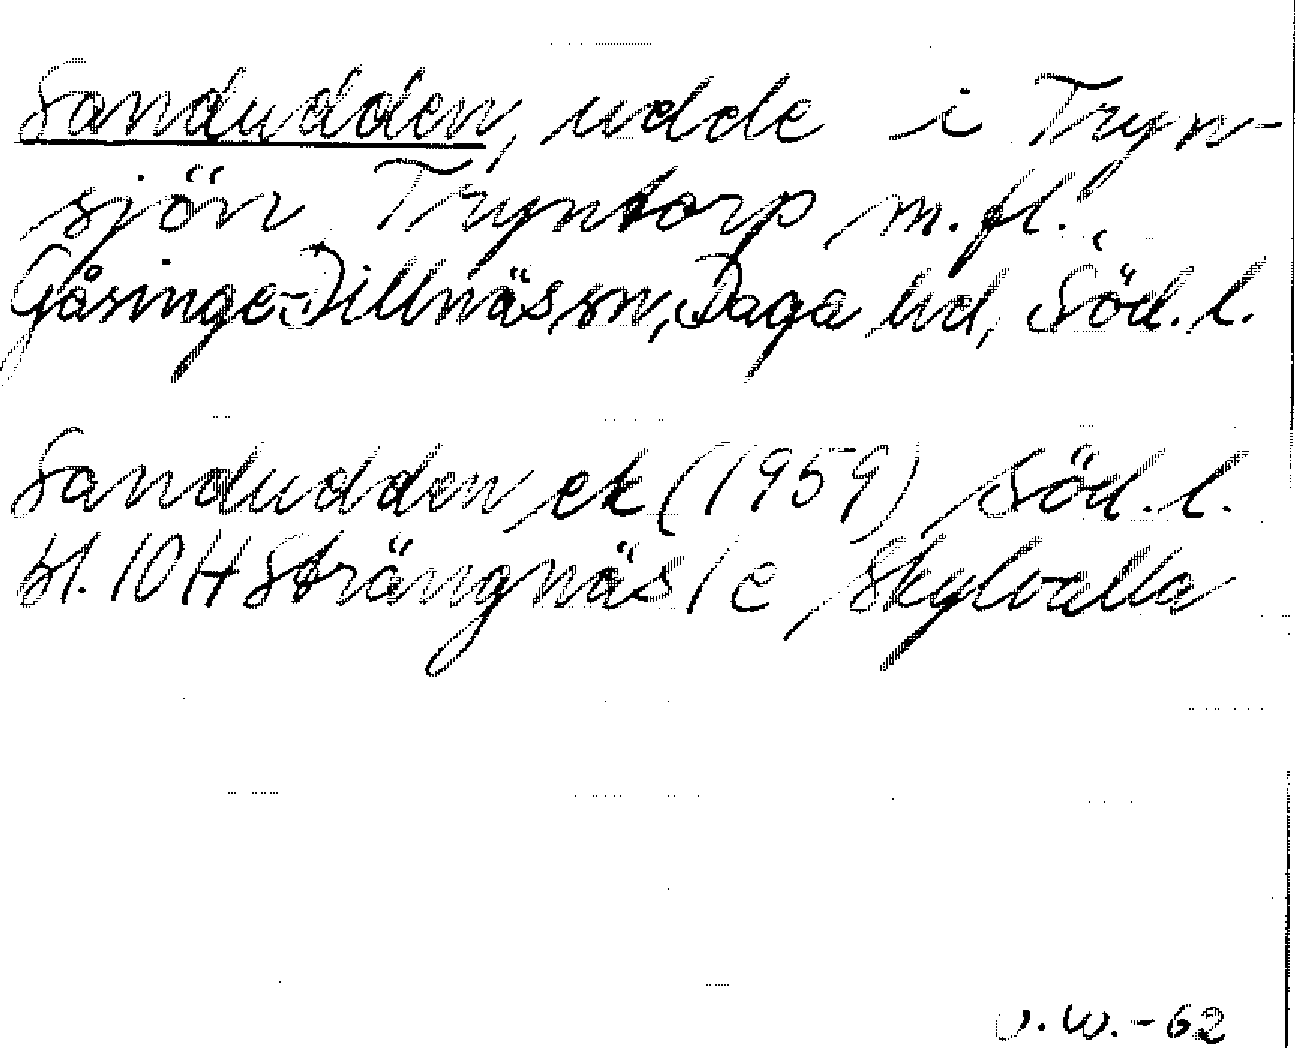 Sandudden, udde i Tryn-
sjön Tryntorp m.fl.,
Gåsinge-Dillnäs sn, Daga hd, Söd. l.
Sandudden ek (1959) Söd. l.
bl. 10 H Strängnäs 1 e Skylvalla
V.W. -62